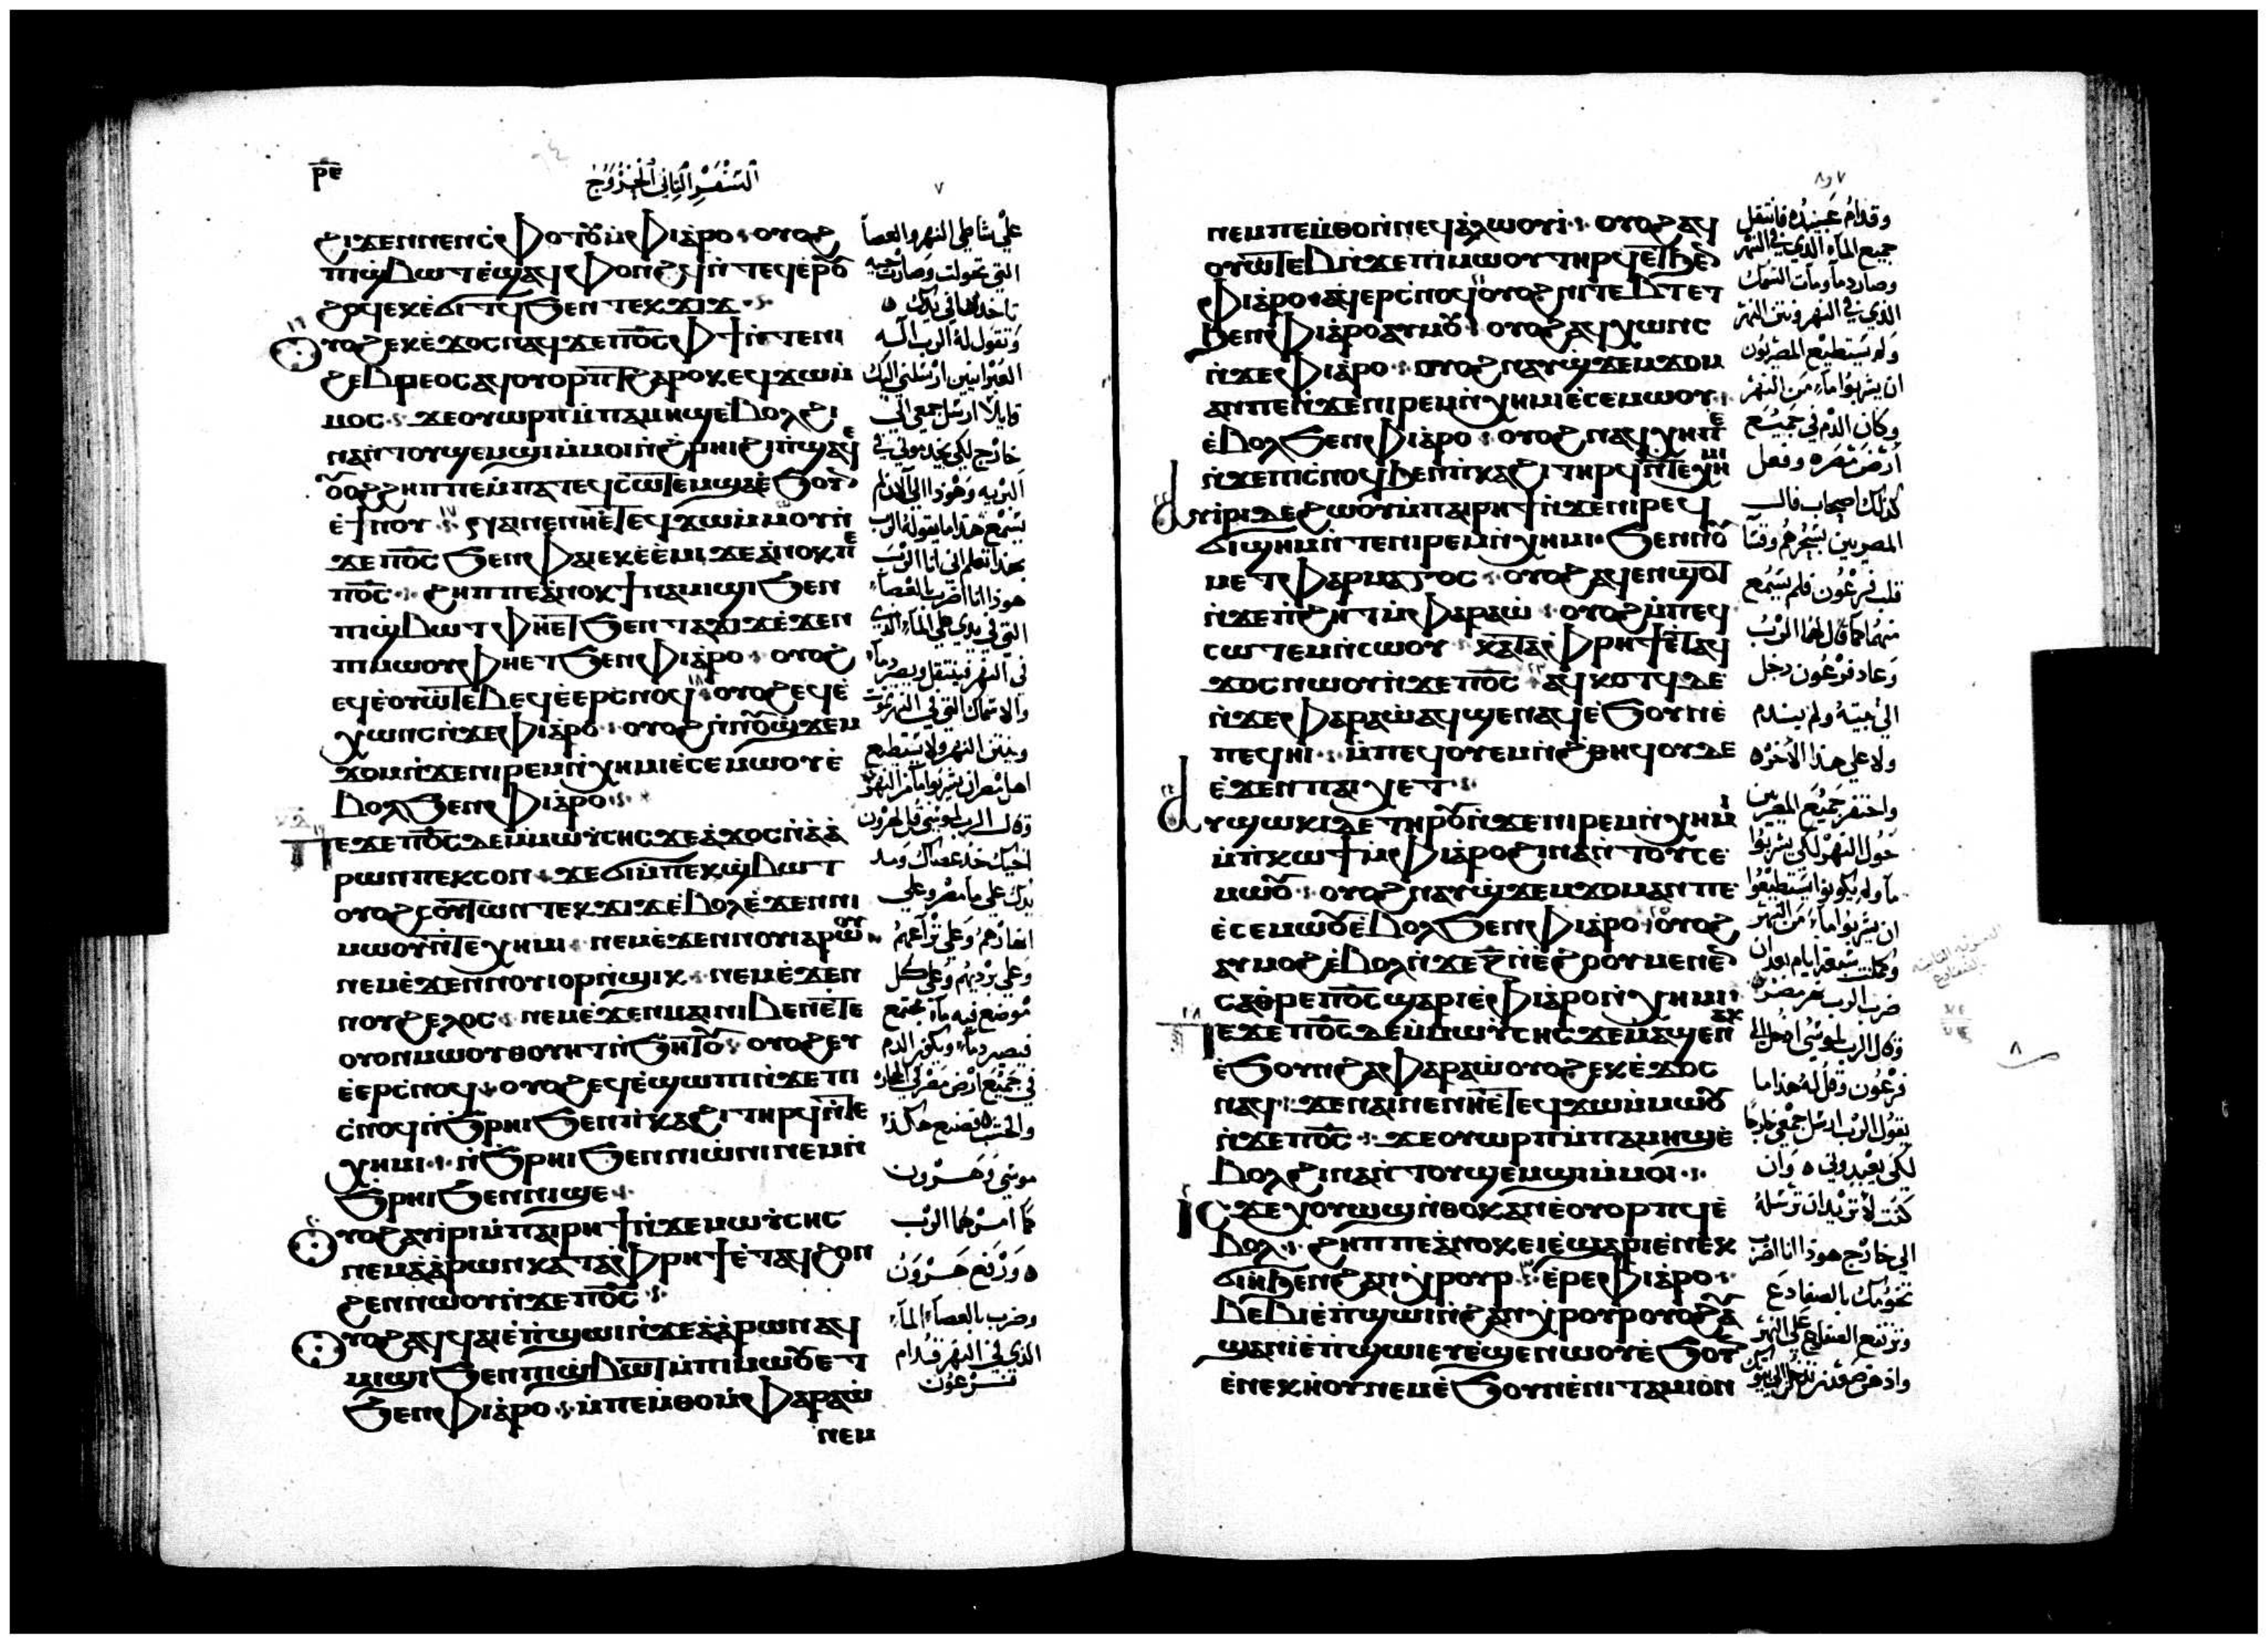 ⲣⲉ
السفر الثاني الخروج
٧
ϩⲓϫⲉⲛ ⲛⲉⲛⲥ̀ⲫⲟⲧⲟⲩ ⲙ̀ⲫⲓⲁⲣⲟ ⲟⲩⲟϩ
ⲡⲓϣ̀ⲃⲱⲧ ⲉ̀ϣⲁϥⲫⲟⲛϩϥ ⲛ̀ⲧⲉϥⲉⲣ
ϩⲟϥ ⲉⲕⲉ̀ϭⲓⲧϥ ϧⲉⲛ ⲧⲉⲕϫⲓϫ
ⲟⲩⲟϩ ⲉⲕⲉ̀ϫⲟⲥ ⲛⲁϥ ϫⲉ ⲡⲟ̅ⲥ̅ ⲫϯ ⲛ̀ⲧⲉ ⲛⲓ
ϩⲉⲃⲣⲉⲟⲥ ⲁϥⲟⲩⲟⲣⲡⲧ ϩⲁⲣⲟⲕ ⲉϥϫⲱ ⲙ̀
ⲙⲟⲥ ϫⲉ ⲟⲩⲱⲣⲡ ⲙ̀ⲡⲁⲙⲏϣ ⲉ̀ⲃⲟⲗ ϩⲓ
ⲛⲁ ⲛ̀ⲧⲟⲩϣⲉⲙϣⲓ ⲙ̀ⲙⲟⲓ ⲛ̀ϩⲣⲏⲓ ϩⲓ ⲡ̀ϣⲁϥⲉ
ⲟⲩⲟϩ ϩⲏⲡⲡⲉ ⲙ̀ⲡⲁⲧⲉϥⲥⲱⲧⲉⲙ ϣⲁ ⲉ̀ϧⲟⲩⲛ
ⲉ̀ϯⲛⲟⲩ ⲛⲁⲓ ⲛⲉ ⲛⲏ ⲉ̀ⲧⲉϥϫⲱ ⲙ̀ⲙⲱⲟⲩ ⲛ̀
ϫⲉ ⲡⲟ̅ⲥ̅ ϧⲉⲛ ⲫⲁⲓ ⲉⲕⲉ̀ⲉ̀ⲙⲓ ϫⲉ ⲁⲛⲟⲕ ⲡⲉ
ⲡⲟ̅ⲥ̅ ϩⲏⲡⲡⲉ ⲁⲛⲟⲕ ϯⲛⲁⲙⲓϣⲓ ϧⲉⲛ
ⲡⲓϣ̀ⲃⲱⲧ ⲫⲏ ⲉⲧ ϧⲉⲛ ⲧⲁϫⲓϫ ⲉ̀ϫⲉⲛ
ⲡⲓⲙⲱⲟⲩ ⲫⲏ ⲉⲧ ϧⲉⲛ ⲫⲓⲁⲣⲟ ⲟⲩⲟϩ
ⲉϥⲉ̀ⲟⲩⲱⲧⲉⲃ ⲉϥⲉ̀ⲉⲣⲥ̀ⲛⲟϥ ⲟⲩⲟϩ ⲉϥⲉ̀
ⲭⲱⲛⲥ ⲛ̀ϫⲉ ⲫⲓⲁⲣⲟ ⲟⲩⲟϩ ⲛ̀ⲛⲟⲩϣ̀ϫⲉⲙ
ϫⲟⲙ ⲛ̀ϫⲉ ⲛⲓⲣⲉⲙⲛ̀ⲭⲏⲙⲓ ⲉ̀ⲥⲉ ⲙⲱⲟⲩ ⲉ̀
ⲃⲟⲗ ϧⲉⲛ ⲫⲓⲁⲣⲟ
ⲡⲉϫⲉ ⲡⲟ̅ⲥ̅ ⲇⲉ ⲙ̀ⲙⲱⲩ̀ⲥⲏⲥ ϫⲉ ⲁ̀ϫⲟⲥ ⲛ̀ⲁ̀ⲁ̀
ⲣⲱⲛ ⲡⲉⲕⲥⲟⲛ ϫⲉ ϭⲓ ⲙ̀ⲡⲉⲕϣ̀ⲃⲱⲧ
ⲟⲩⲟϩ ⲥⲟⲩⲧⲱⲛ ⲧⲉⲕϫⲓϫ ⲉ̀ⲃⲟⲗ ⲉ̀ϫⲉⲛ ⲛⲓ
ⲙⲱⲟⲩ ⲛ̀ⲧⲉ ⲭⲏⲙⲓ ⲛⲉⲙ ⲉ̀ϫⲉⲛ ⲛⲟⲩⲓⲁⲣⲱⲟⲩ
ⲛⲉⲙ ⲉ̀ϫⲉⲛ ⲛⲟⲩⲓⲟⲣ ⲛ̀ϣⲓⲕ ⲛⲉⲙ ⲉ̀ϫⲉⲛ
ⲛⲟⲩϩⲉⲗⲟⲥ ⲛⲉⲙ ⲉ̀ϫⲉⲛ ⲙⲁⲓ ⲛⲓⲃⲉⲛ ⲉ̀ⲧⲉ
ⲟⲩⲟⲛ ⲙⲱⲟⲩ ⲑⲟⲩⲏⲧ ⲛ̀ϧⲏⲧⲟⲩ ⲟⲩⲟϩ ⲉⲩ
ⲉ̀ⲉⲣⲥ̀ⲛⲟϥ ⲟⲩⲟϩ ⲉϥⲉ̀ϣⲱⲡⲓ ⲛ̀ϫⲉ ⲡⲓ
ⲥ̀ⲛⲟϥ ⲛ̀ϧⲣⲏⲓ ϧⲉⲛ ⲡ̀ⲕⲁϩⲓ ⲧⲏⲣϥ ⲛ̀ⲧⲉ
ⲭⲏⲙⲓ ⲛ̀ϧⲣⲏⲓ ϧⲉⲛ ⲛⲓⲱ̀ⲛⲓ ⲛⲉⲙ ⲛ̀
ϧⲣⲏⲓ ϧⲉⲛ ⲛⲓϣⲉ
ⲟⲩⲟϩ ⲁⲩⲓⲣⲓ ⲙ̀ⲡⲁⲓⲣⲏϯ ⲛ̀ϫⲉ ⲙⲱⲩ̀ⲥⲏⲥ
ⲛⲉⲙ ⲁ̀ⲁ̀ⲣⲱⲛ ⲕⲁⲧⲁ ⲫⲣⲏϯ ⲉ̀ⲧⲁϥϩⲟⲛ
ϩⲉⲛ ⲛⲱⲟⲩ ⲛ̀ϫⲉ ⲡⲟ̅ⲥ̅
ⲟⲩⲟϩ ⲁϥϥⲁⲓ ⲉ̀ⲡ̀ϣⲱⲓ ⲛ̀ϫⲉ ⲁ̀ⲁ̀ⲣⲱⲛ ⲁϥ
ⲙⲓϣⲓ ϧⲉⲛ ⲡⲓϣ̀ⲃⲱⲧ ⲙ̀ⲡⲓⲙⲱⲟⲩ ⲉⲧ
ϧⲉⲛ ⲫⲓⲁⲣⲟ ⲙ̀ⲡⲉⲙⲑⲟ ⲙ̀ⲫⲁⲣⲁⲱ̀
ⲛⲉⲙ
على شاطي النهر والعصا
التي تحولت وصارت حيه
تاخدها في يدك
وتقول له الرب اله
العبرانيين ارسلني اليك
قايلا ارسل جمعي الى
خارج لكي يخدموني في
البريه وهوذا الى الان لم
يسمع هذا ما يقوله الرب
بهذا تعلم اني انا الرب
هوذا انا اضرب بالعصا
التي في يدي على الماء الذي
في النهر فينتقل ويصير دما
والاسماك التي في النهر تموت
وينتن النهر ولا يستطيع
اهل مصر ان يشربوا ماء من النهر
وقال الرب لموسى قل لهرون
اخيك خذ عصاك ومد
يدك على ما مصر وعلى
انهارهم وعلى ترأعهم
وعلى برديهم وعلى كل
موضع فيه ماء مجتمع
فيصير دما ويكون الدم
في جميع ارض مصر في الحجاره
والخشب فصنع هكذا
موسى وهرون
كما امرهما الرب
ورفع هرون
وضرب بالعصاء الماء
الذي في النهر قدام
فرعون
٧ و٨
ⲛⲉⲙ ⲡⲉⲙ̀ⲑⲟ ⲛ̀ⲛⲉϥⲁ̀ⲗⲱⲟⲩⲓ̀ ⲟⲩⲟϩ ⲁϥ
ⲟⲩⲱⲧⲉⲃ ⲛ̀ϫⲉ ⲡⲓⲙⲱⲟⲩ ⲧⲏⲣϥ ⲉⲧϧⲉⲛ
ⲫⲓⲁⲣⲟ ⲁϥⲉⲣⲥ̀ⲛⲟϥ ⲟⲩⲟϩ ⲛⲓⲧⲉⲃⲧ ⲉⲧ
ϧⲉⲛ ⲫⲓⲁⲣⲟ ⲁⲩⲙⲟⲩ ⲟⲩⲟϩ ⲁϥⲭⲱⲛⲥ
ⲛ̀ϫⲉ ⲫⲓⲁⲣⲟ ⲟⲩⲟϩ ⲛⲁⲩϣ̀ϫⲉⲙϫⲟⲙ
ⲁⲛ ⲡⲉ ⲛ̀ϫⲉ ⲛⲓⲣⲉⲙⲛ̀ⲭⲏⲙⲓ ⲉ̀ⲥⲉ ⲙⲱⲟⲩ
ⲉ̀ⲃⲟⲗ ϧⲉⲛ ⲫⲓⲁⲣⲟ ⲟⲩⲟϩ ⲛⲁϥⲭⲏ ⲡⲉ
ⲛ̀ϫⲉ ⲡⲓⲥ̀ⲛⲟϥ ϧⲉⲛ ⲡ̀ⲕⲁϩⲓ ⲧⲏⲣϥ ⲛ̀ⲧⲉ ⲭⲏⲙⲓ
ⲁⲩⲓⲣⲓ ⲇⲉ ϩⲱⲟⲩ ⲙ̀ⲡⲁⲓⲣⲏϯ ⲛ̀ϫⲉ ⲛⲓⲣⲉϥ
ϭⲓϣⲏⲙ ⲛ̀ⲧⲉ ⲛⲓⲣⲉⲙⲛ̀ⲭⲏⲙⲓ ϧⲉⲛ ⲛⲟⲩ
ⲙⲉⲧⲫⲁⲣⲙⲁⲅⲟⲥ ⲟⲩⲟϩ ⲁϥⲉⲛϣⲟⲧ
ⲛ̀ϫⲉ ⲡ̀ϩⲏⲧ ⲙ̀ⲫⲁⲣⲁⲱ̀ ⲟⲩⲟϩ ⲙ̀ⲡⲉϥ
ⲥⲱⲧⲉⲙ ⲛ̀ⲥⲱⲟⲩ ⲕⲁⲧⲁ ⲫⲣⲏϯ ⲉ̀ⲧⲁϥ
ϫⲟⲥ ⲛⲱⲟⲩ ⲛ̀ϫⲉ ⲡⲟ̅ⲥ̅ ⲁϥⲕⲟⲧϥ ⲇⲉ
ⲛ̀ϫⲉ ⲫⲁⲣⲁⲱ̀ ⲁϥϣⲉⲛⲁϥ ⲉ̀ϧⲟⲩⲛ ⲉ̀
ⲡⲉϥⲏⲓ ⲙ̀ⲡⲉϥⲟⲩⲉⲙ ⲛ̀ϩ̀ⲑⲏϥ ⲟⲩⲇⲉ
ⲉ̀ϫⲉⲛ ⲡⲁⲓⲭⲉⲧ
ⲁⲩϣⲱⲕⲓ ⲇⲉ ⲧⲏⲣⲟⲩ ⲛ̀ϫⲉ ⲛⲓⲣⲉⲙⲛ̀ⲭⲏⲙⲓ
ⲙ̀ⲡ̀ⲕⲱϯ ⲙ̀ⲫⲓⲁⲣⲟ ϩⲓⲛⲁ ⲛ̀ⲧⲟⲩⲥⲉ
ⲙⲱⲟⲩ ⲟⲩⲟϩ ⲛⲁⲩϣ̀ϫⲉⲙϫⲟⲙ ⲁⲛ ⲡⲉ
ⲉ̀ⲥⲉ ⲙⲱⲟⲩ ⲉ̀ⲃⲟⲗ ϧⲉⲛ ⲫⲓⲁⲣⲟ ⲟⲩⲟϩ
ⲁⲩⲙⲟϩ ⲉ̀ⲃⲟⲗ ⲛ̀ϫⲉ ⲍ̅ ⲛ̀ⲉ̀ϩⲟⲟⲩ ⲙⲉⲛⲉⲛ
ⲥⲁ ⲑⲣⲉ ⲡⲟ̅ⲥ̅ ϣⲁⲣⲓ ⲉ̀ⲫⲓⲁⲣⲟ ⲛ̀ⲭⲏⲙⲓ
ⲡⲉϫⲉ ⲡⲟ̅ⲥ̅ ⲇⲉ ⲙ̀ⲙⲱⲩ̀ⲥⲏⲥ ϫⲉ ⲙⲁϣⲉⲛⲁⲕ
ⲉ̀ϧⲟⲩⲛ ϩⲁ ⲫⲁⲣⲁⲱ̀ ⲟⲩⲟϩ ⲉⲕⲉ̀ϫⲟⲥ
ⲛⲁϥ ϫⲉ ⲛⲁⲓ ⲛⲉ ⲛⲏ ⲉ̀ⲧⲉϥϫⲱ ⲙ̀ⲙⲱⲟⲩ
ⲛ̀ϫⲉ ⲡⲟ̅ⲥ̅ ϫⲉ ⲟⲩⲱⲣⲡ ⲙ̀ⲡⲁⲙⲏϣ ⲉ̀
ⲃⲟⲗ ϩⲓⲛⲁ ⲛ̀ⲧⲟⲩϣⲉⲙϣⲓ ⲙ̀ⲙⲟⲓ
ⲓⲥϫⲉ ⲭⲟⲩⲱϣ ⲛ̀ⲑⲟⲕ ⲁⲛ ⲉ̀ⲟⲩⲟⲣⲡϥ ⲉ̀
ⲃⲟⲗ ϩⲏⲡⲡⲉ ⲁ̀ⲛⲟⲕ ⲉⲓⲉ̀ϣⲁⲣⲓ ⲉ̀ⲛⲉⲕ
ϭⲓⲏ ϧⲉⲛ ϩⲁⲛⲭⲣⲟⲩⲣ ⲉ̀ⲣⲉ ⲫⲓⲁⲣⲟ
ⲃⲉⲃⲓ ⲉ̀ⲡ̀ϣⲱⲓ ⲛ̀ϩⲁⲛⲭⲣⲟⲩⲣ ⲟⲩⲟϩ ⲁⲩ
ϣⲁⲛⲓ̀ ⲉ̀ⲡ̀ϣⲱⲓ ⲉⲩⲉ̀ϣⲉⲛⲱⲟⲩ ⲉ̀ϧⲟⲩⲛ
ⲉ̀ⲛⲉⲕⲏⲟⲩ ⲛⲉⲙ ⲉ̀ϧⲟⲩⲛ ⲉ̀ⲛⲓⲧⲁⲙⲓⲟⲛ
وقدام عبيده فانتقل
جميع الماء الذي في النهر
وصار دما ومات السمك
الذي في النهر ونتن النهر
ولم يستطيع المصريون
ان يشربوا ماء من النهر
وكان الدم في جميع
ارض مصر وفعل
كذلك اصحاب فال
المصريين بسحرهم وقسا
قلب فرعون فلم يسمع
منهما كما قال لهما الرب
وعاد فرعون دخل
الى بيته ولم يسلم
ولا على هذا الاخره
واحتفر جميع المصريين
حول النهر لكي يشربوا
ماء ولم يكونوا يستطيعوا
ان يشربوا ماء من النهر
وكملت سبعة ايام بعد ان
ضرب الرب نهر مصر
وقال الرب لموسى ادخل الى
فرعون وقل له هذا ما
يقول الرب ارسل جمعي خارجا
لكي يعبدوني وان
كنت لا تريد ان ترسله
الى خارج هوذا انا اضرب
تخومك بالضفادع
وترتفع الضفادع على النهر
٨